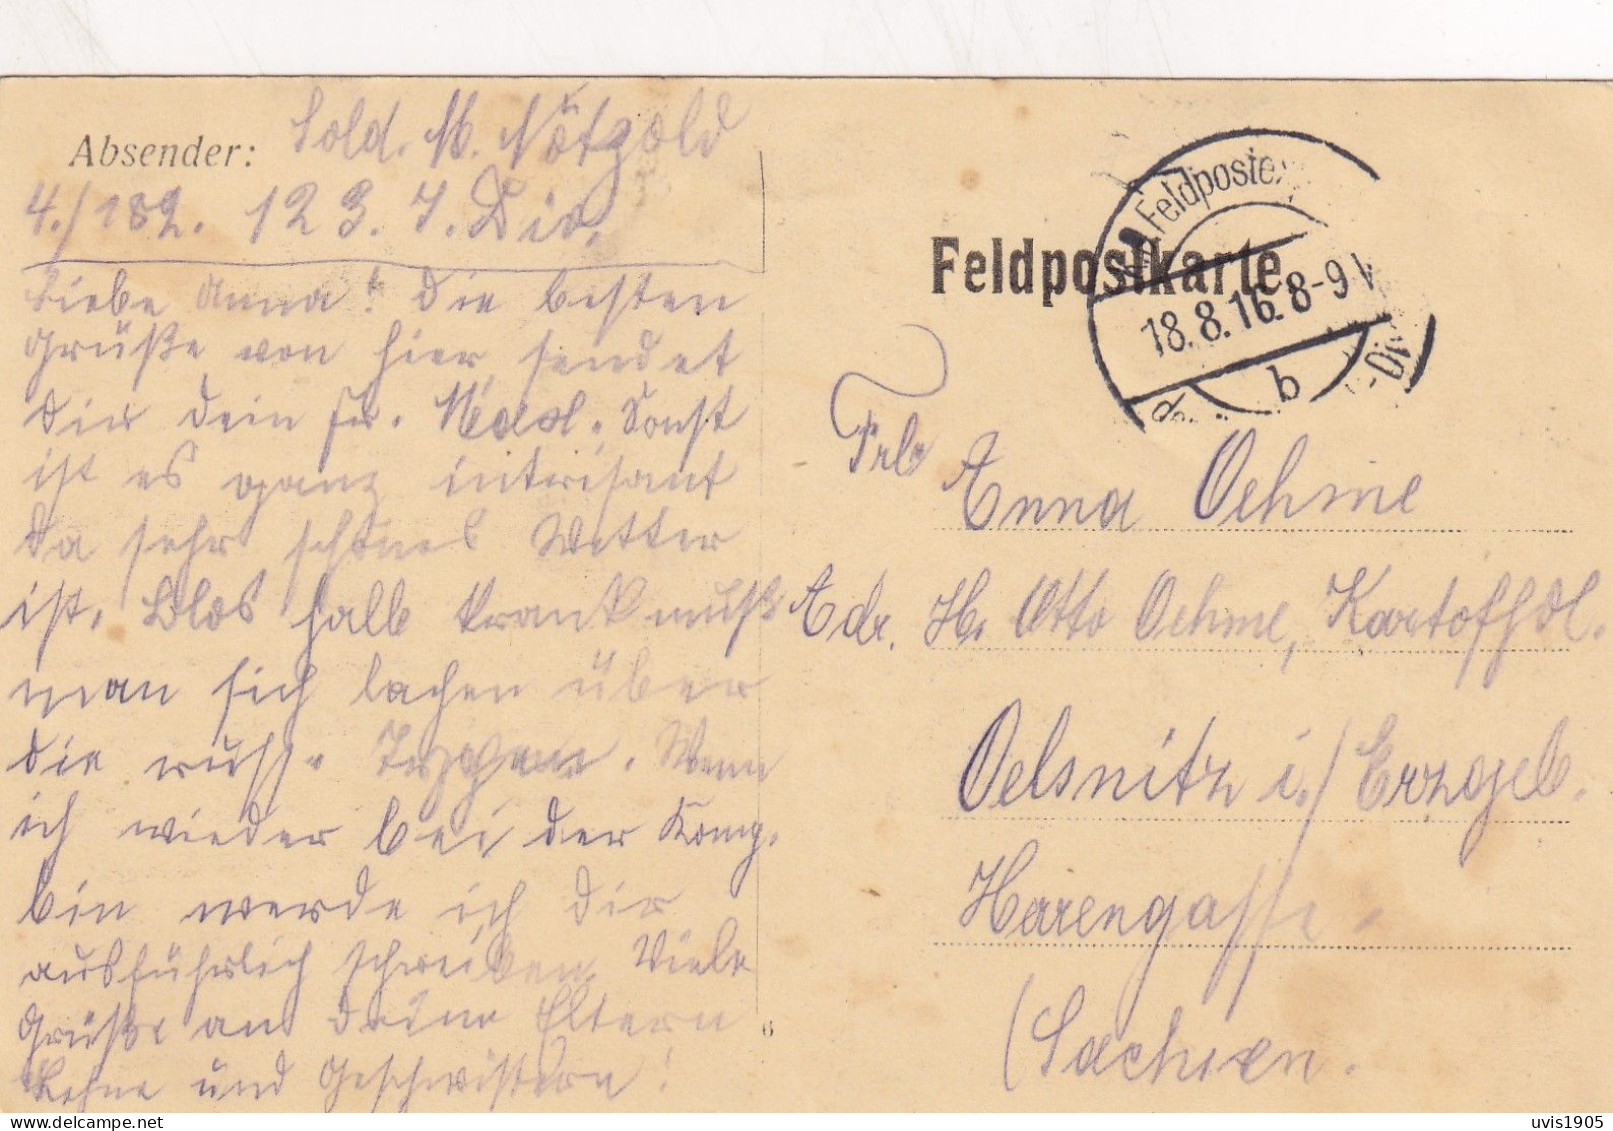 Absender: Sold. M. Nötzold
4./182. 123. J. Div.
Liebe Anna! Die besten
Grüße von hier sendet
Dir dein Fr. Max. Sonst
ist es ganz intrisant
da sehr schönes Wetter
ist. Blos halb krank muß
man sich lachen über
die russ. Truppen. Wenn
ich wieder bei der Komp.
bin werde ich dir
ausführlich schreiben. Viele
Grüße an deine Eltern
und Geschwistern!
6
Feldpostkarte
Feldpostex
18.8.16. 8-9 V
b
Frl.
Anna Oehme
Adr. H. Otto Oehme, Kartoffhdl.
Oelsnitz i./Erzgeb.
(Sachsen.
uvis1905